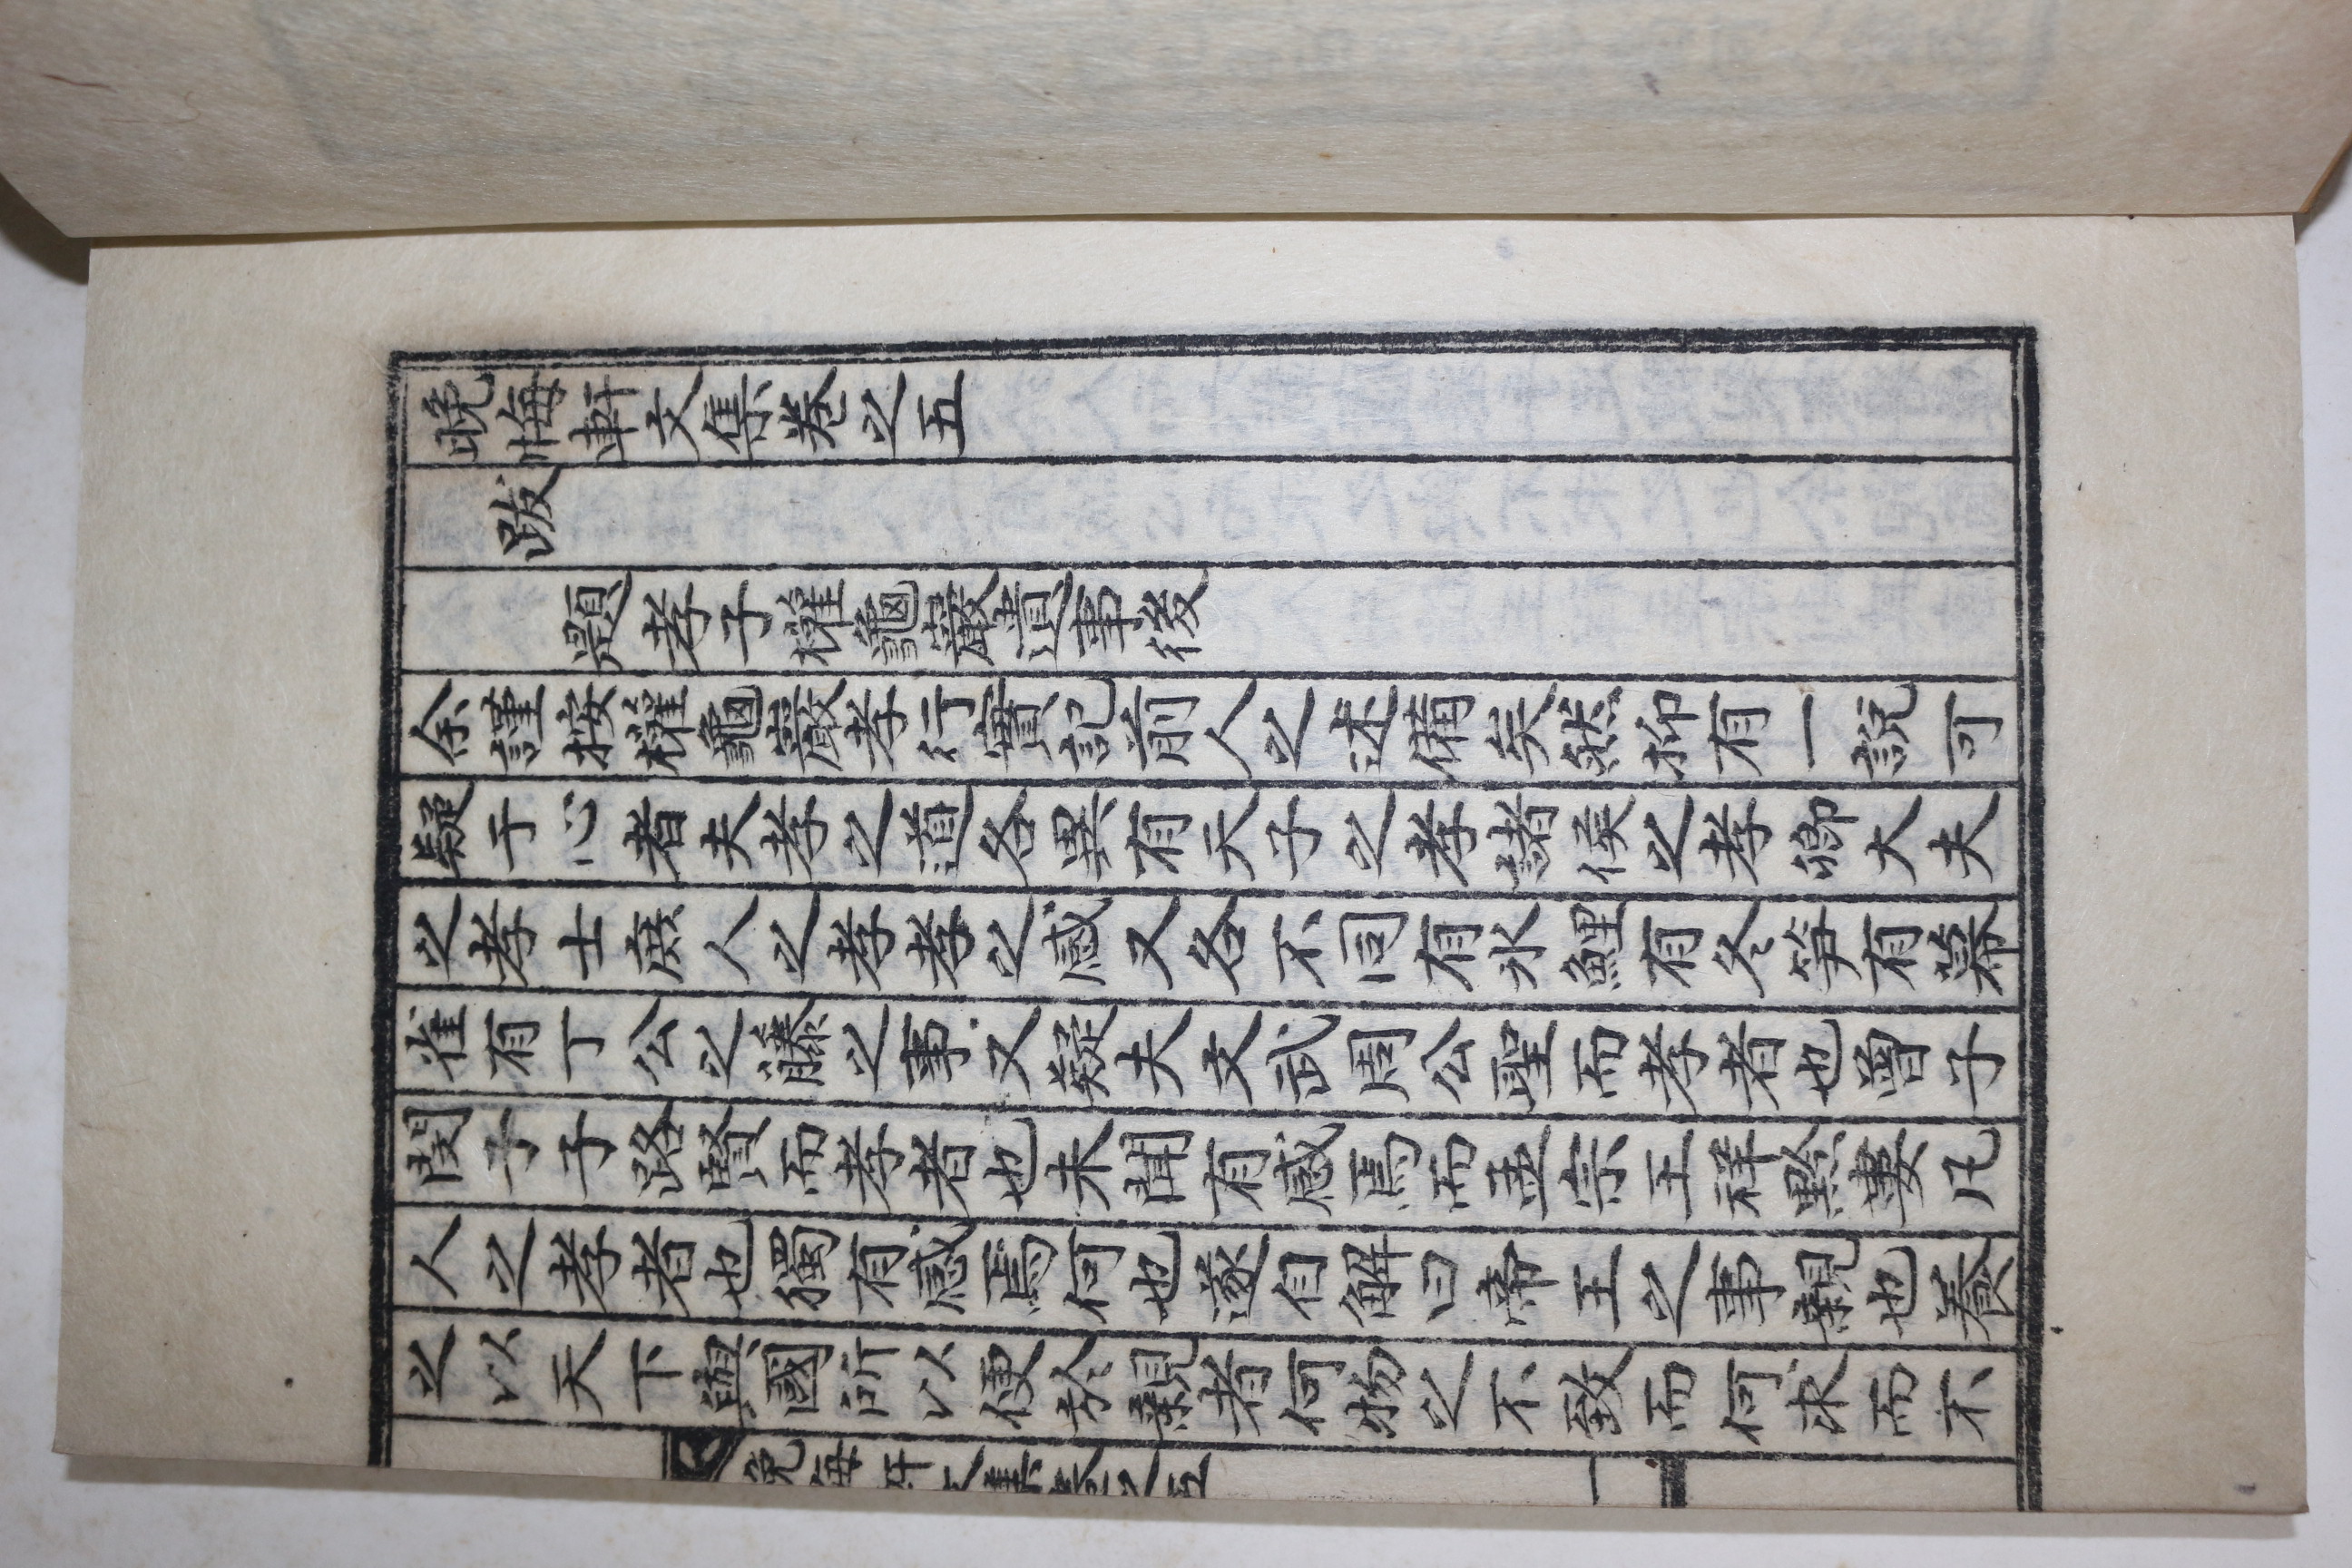 晚悔軒文集卷之五
跋
題孝子權龜巖遺事後
余謹按權龜巖孝行實記前人之述備矣然抑有一說可
疑于心者夫孝之道各異有天子之孝諸侯之孝卿大夫
之孝士庶人之孝孝之感又各不同有氷鯉有冬笋有幕
雀有丁公之藤之事又疑夫文武周公聖而孝者也曾子
閔子子路賢而孝者也未聞有感焉而孟宗王祥黔婁凡
人之孝者也獨有感焉何也遂自解曰帝王之事親也養
之以天下與國所以便於親者何物之不致而何求而不
晚悔軒文集卷之五 一